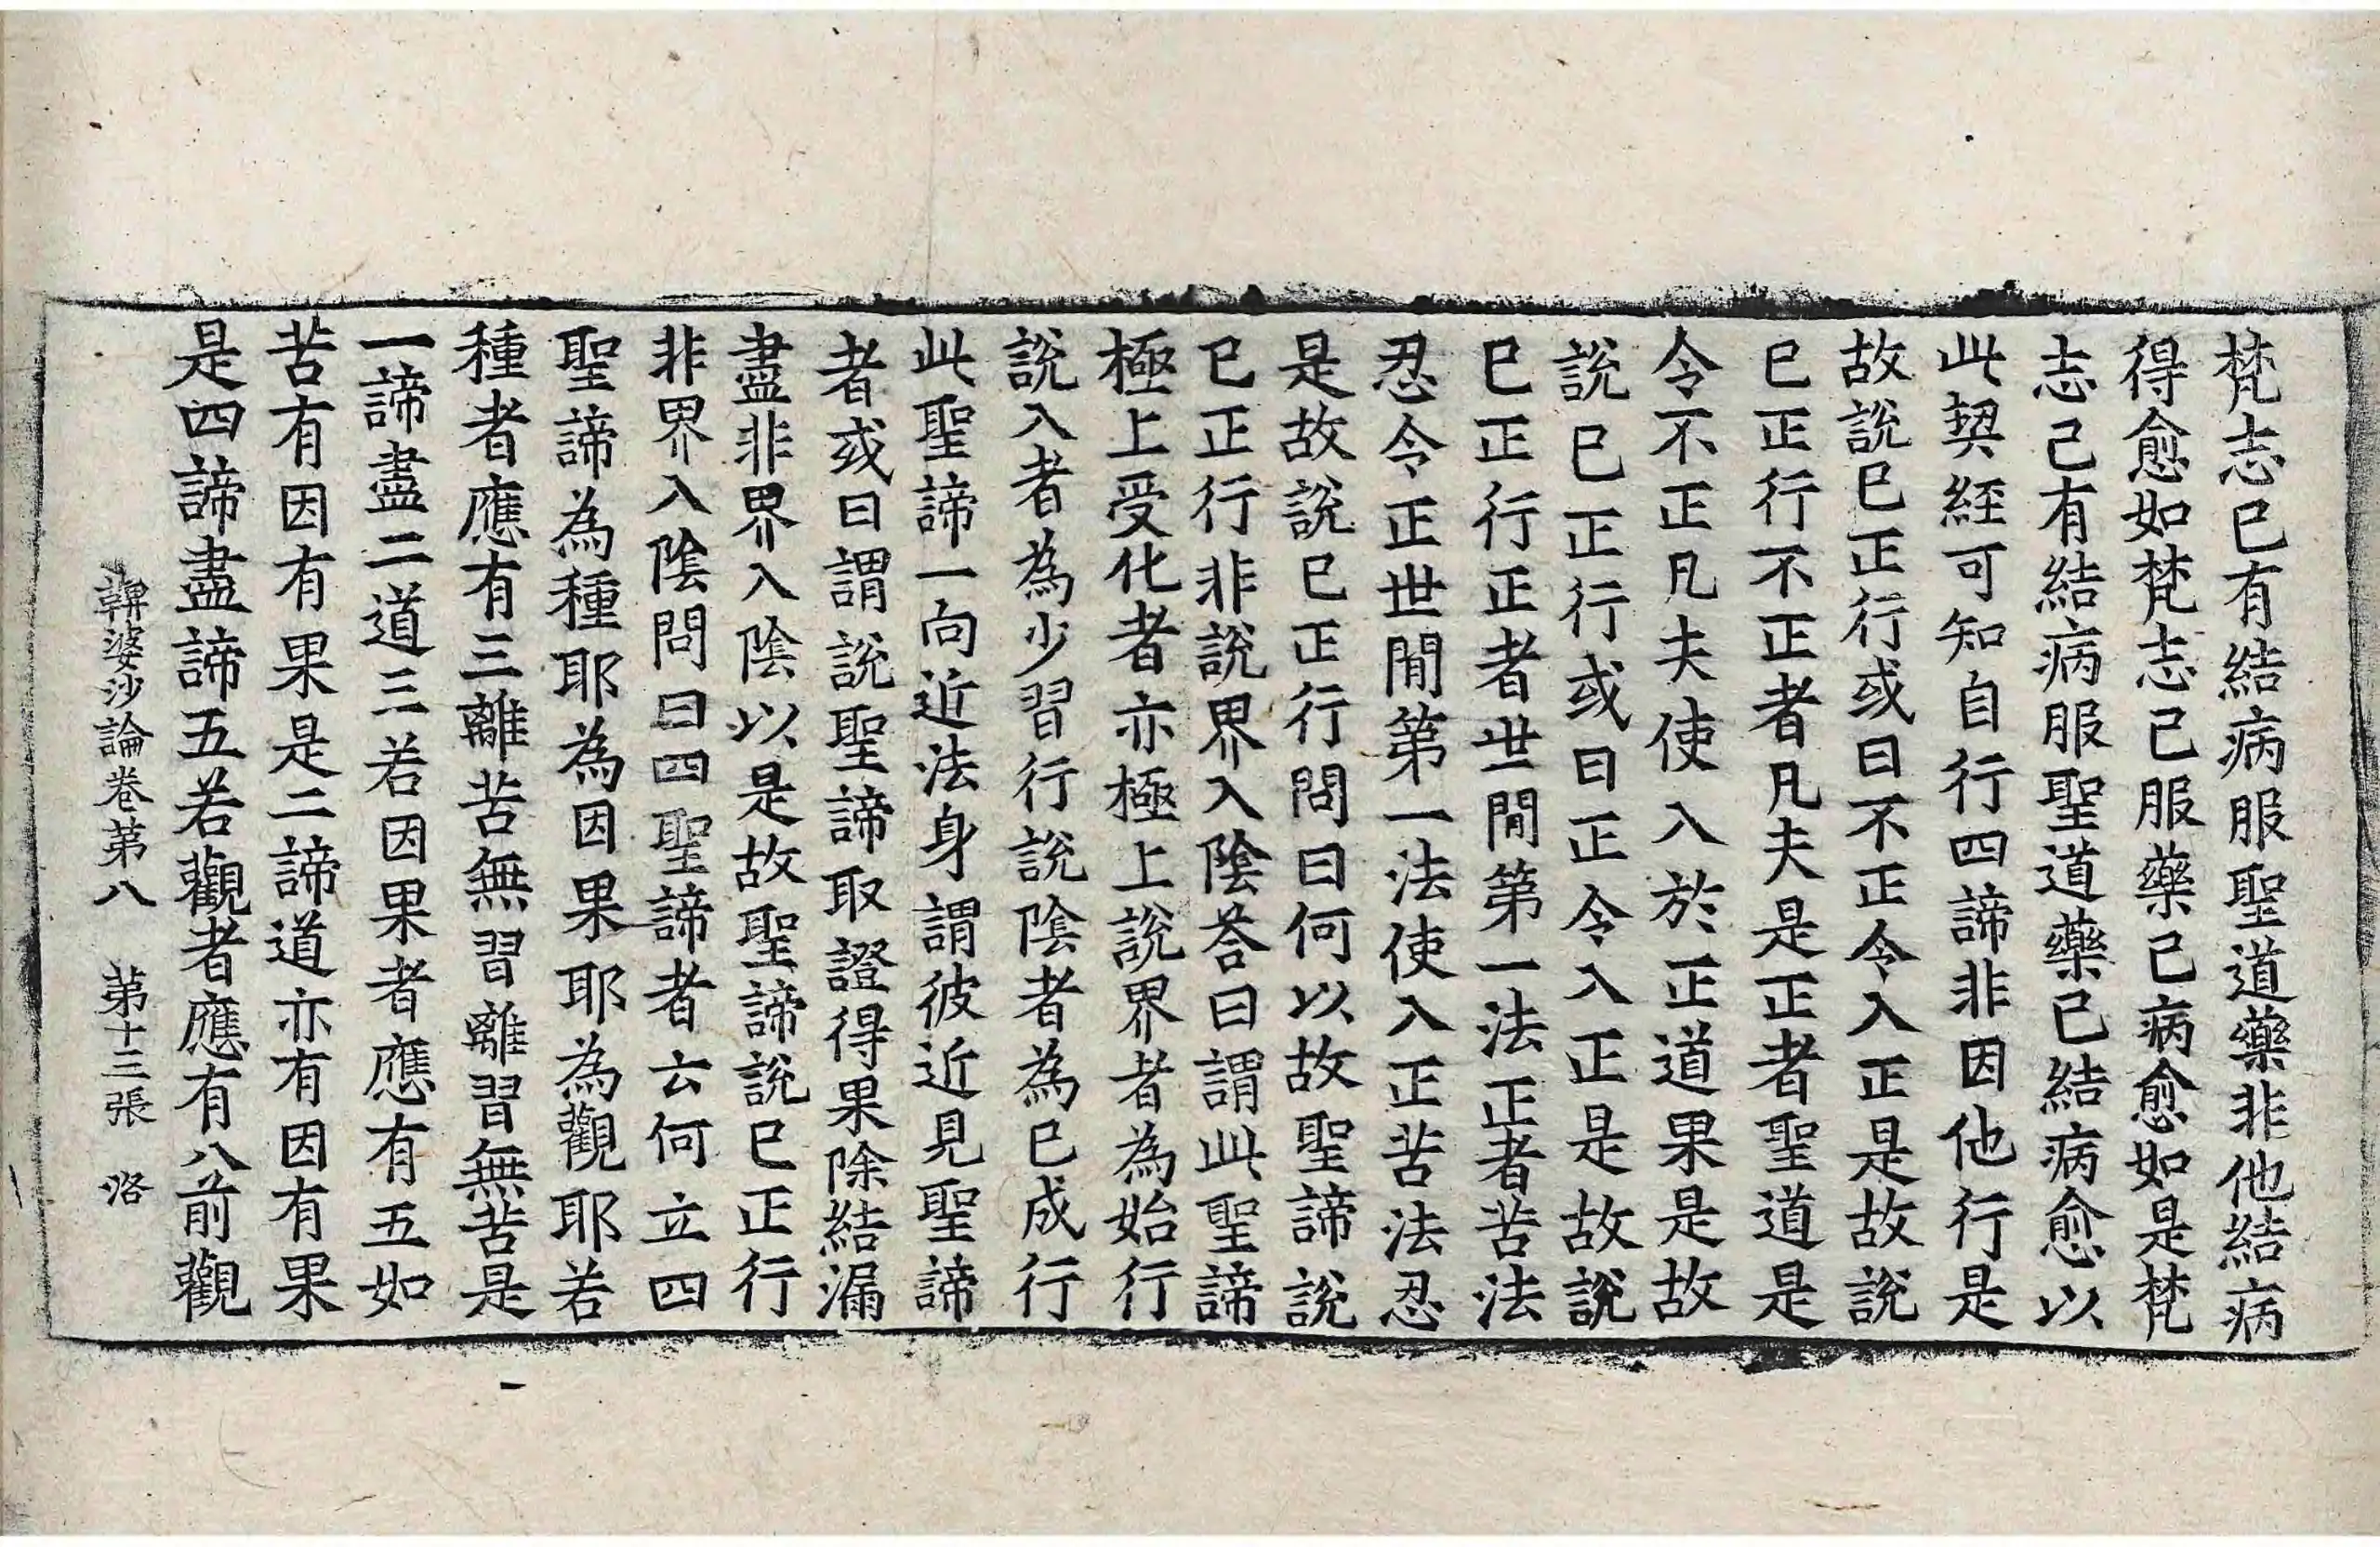 梵志已有結病服聖道藥非他結病
得愈如梵志己服藥己病愈如是梵
志己有結病服聖道藥已結病愈以
此契經可知自行四諦非因他行是
故說已正行或曰不正令入正是故說
已正行不正者凡夫是正者聖道是
令不正凡夫使入於正道果是故
說已正行或曰正令入正是故說
已正行正者世閒第一法正者苦法
忍令正世閒第一法使入正苦法忍
是故說已正行問曰何以故聖諦說
已正行非說界入陰荅曰謂此聖諦
極上受化者亦極上說界者為始行
說入者為少習行說陰者為已成行
此聖諦一向近法身謂彼近見聖諦
者或曰謂說聖諦取證得果除結漏
盡非界入陰以是故聖諦說已正行
非界入陰問曰四聖諦者云何立四
聖諦為種耶為因果耶為觀耶若
種者應有三離苦無習離習無苦是
一諦盡二道三若因果者應有五如
苦有因有果是二諦道亦有因有果
是四諦盡諦五若觀者應有八前觀
鞞婆沙論卷第八　第十三張　洛